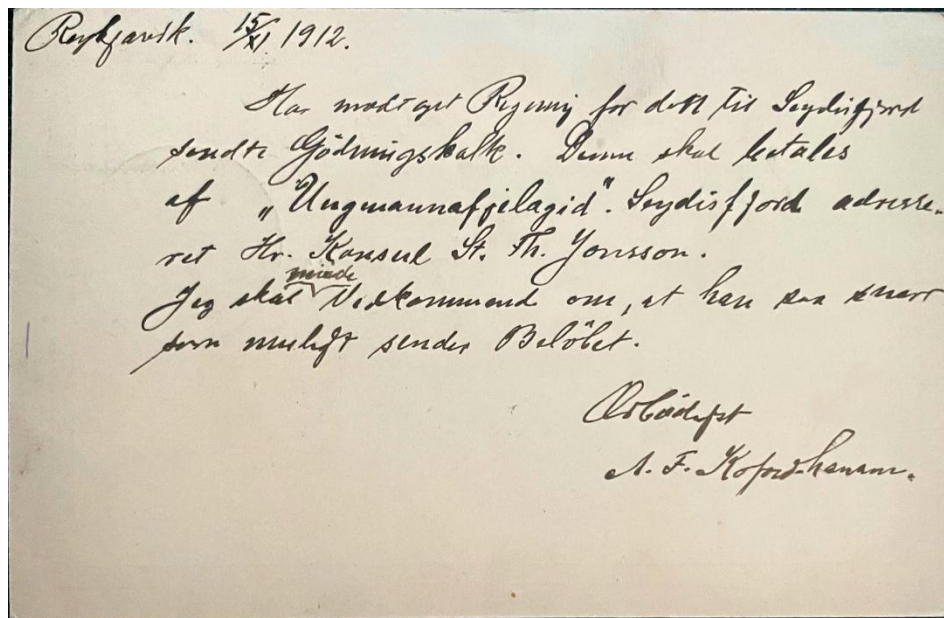 Reykjavik. 15/XI 1912.
Har modtaget Regning for dett til Seydisfjord
sendte Gödningskalk. Denne skal betales
af „Ungmannafjelagid". Seydisfjord adresse-
ret Hr. Konsul St. Th. Jonsson.
Jeg skal minde Vedkommend om, at han saa snart
som muligt sender Belöbet.
Ærbödigst
A. F. Kofoed-Hansen.